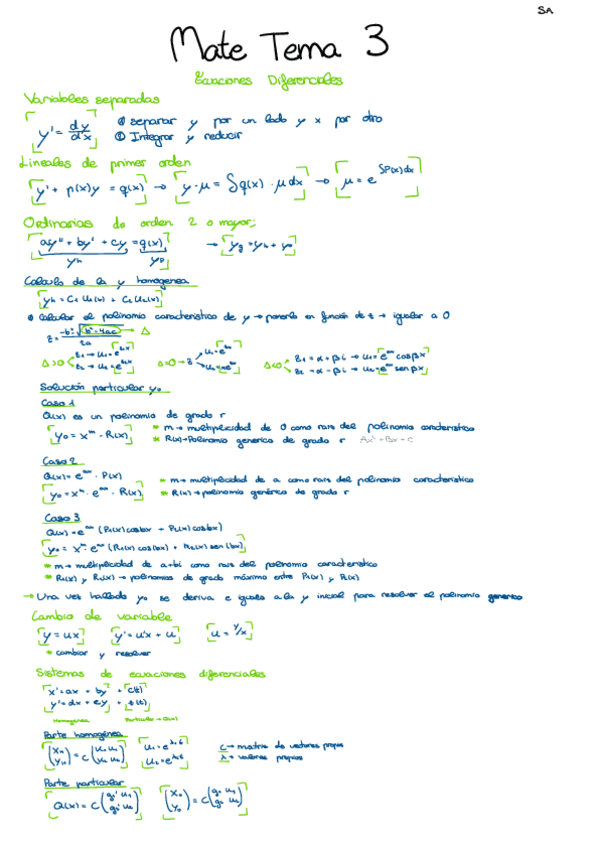 SA
Mate Tema 3
Ecuaciones Diferenciales
Variables separadas
y' = dy/dx
① separar y por un lado y x por otro
② Integrar y reducir
Lineales de primer orden
y' + p(x)y = q(x) → y·μ = ∫q(x)·μdx → μ = e^∫P(x)dx
Ordinarias de orden 2 o mayor:
ay'' + by' + cy = q(x) → yg = yh + yp
yh yp
Calculo de la y homogenea
yh = C₁ U₁(x) + C₂ U₂(x)
Calcular el polinomio caracteristico de y → ponerlo en función de z → igualar a 0
z = -b ± √b²-4ac / 2a → Δ
Δ>0
Δ=0 → z
Δ<0 z₁ = α + βi → u₁ = e^αx cosβx
z₂ = α - βi → u₂ = e^αx senβx
Solución particular yp
Caso 1
Q(x) es un polinomio de grado r
yp = x^m · R(x)
* m → multiplicidad de 0 como raiz del polinomio caracteristico
* R(x) → Polinomio generico de grado r Ax² + Bx + C
Caso 2
Q(x) = e^ax · P(x)
yp = x^m · e^ax · R(x)
* m → multiplicidad de a como raiz del polinomio caracteristico
* R(x) → polinomio genérico de grado r
Caso 3
Q(x) = e^ax (P₁(x) cosbx + P₂(x) cosbx)
yp = x^m · e^ax (R₁(x) cos(bx) + R₂(x) sen(bx)
* m → multiplicidad de a+bi como raiz del polinomio caracteristico
* R₁(x) y R₂(x) → polinomios de grado máximo entre P₁(x) y P₂(x)
→ Una vez hallado yp se deriva e iguala a la y inicial para resolver el polinomio generico
Cambio de variable
y = ux y' = u'x + u u = y/x
* cambiar y resolver
Sistemas de ecuaciones diferenciales
x' = ax + by + c(t)
y' = dx + ey + f(t)
Homogenea Particular → Q(x)
Parte homogénea
C → matriz de vectores propios
λ → valores propios
Parte particular